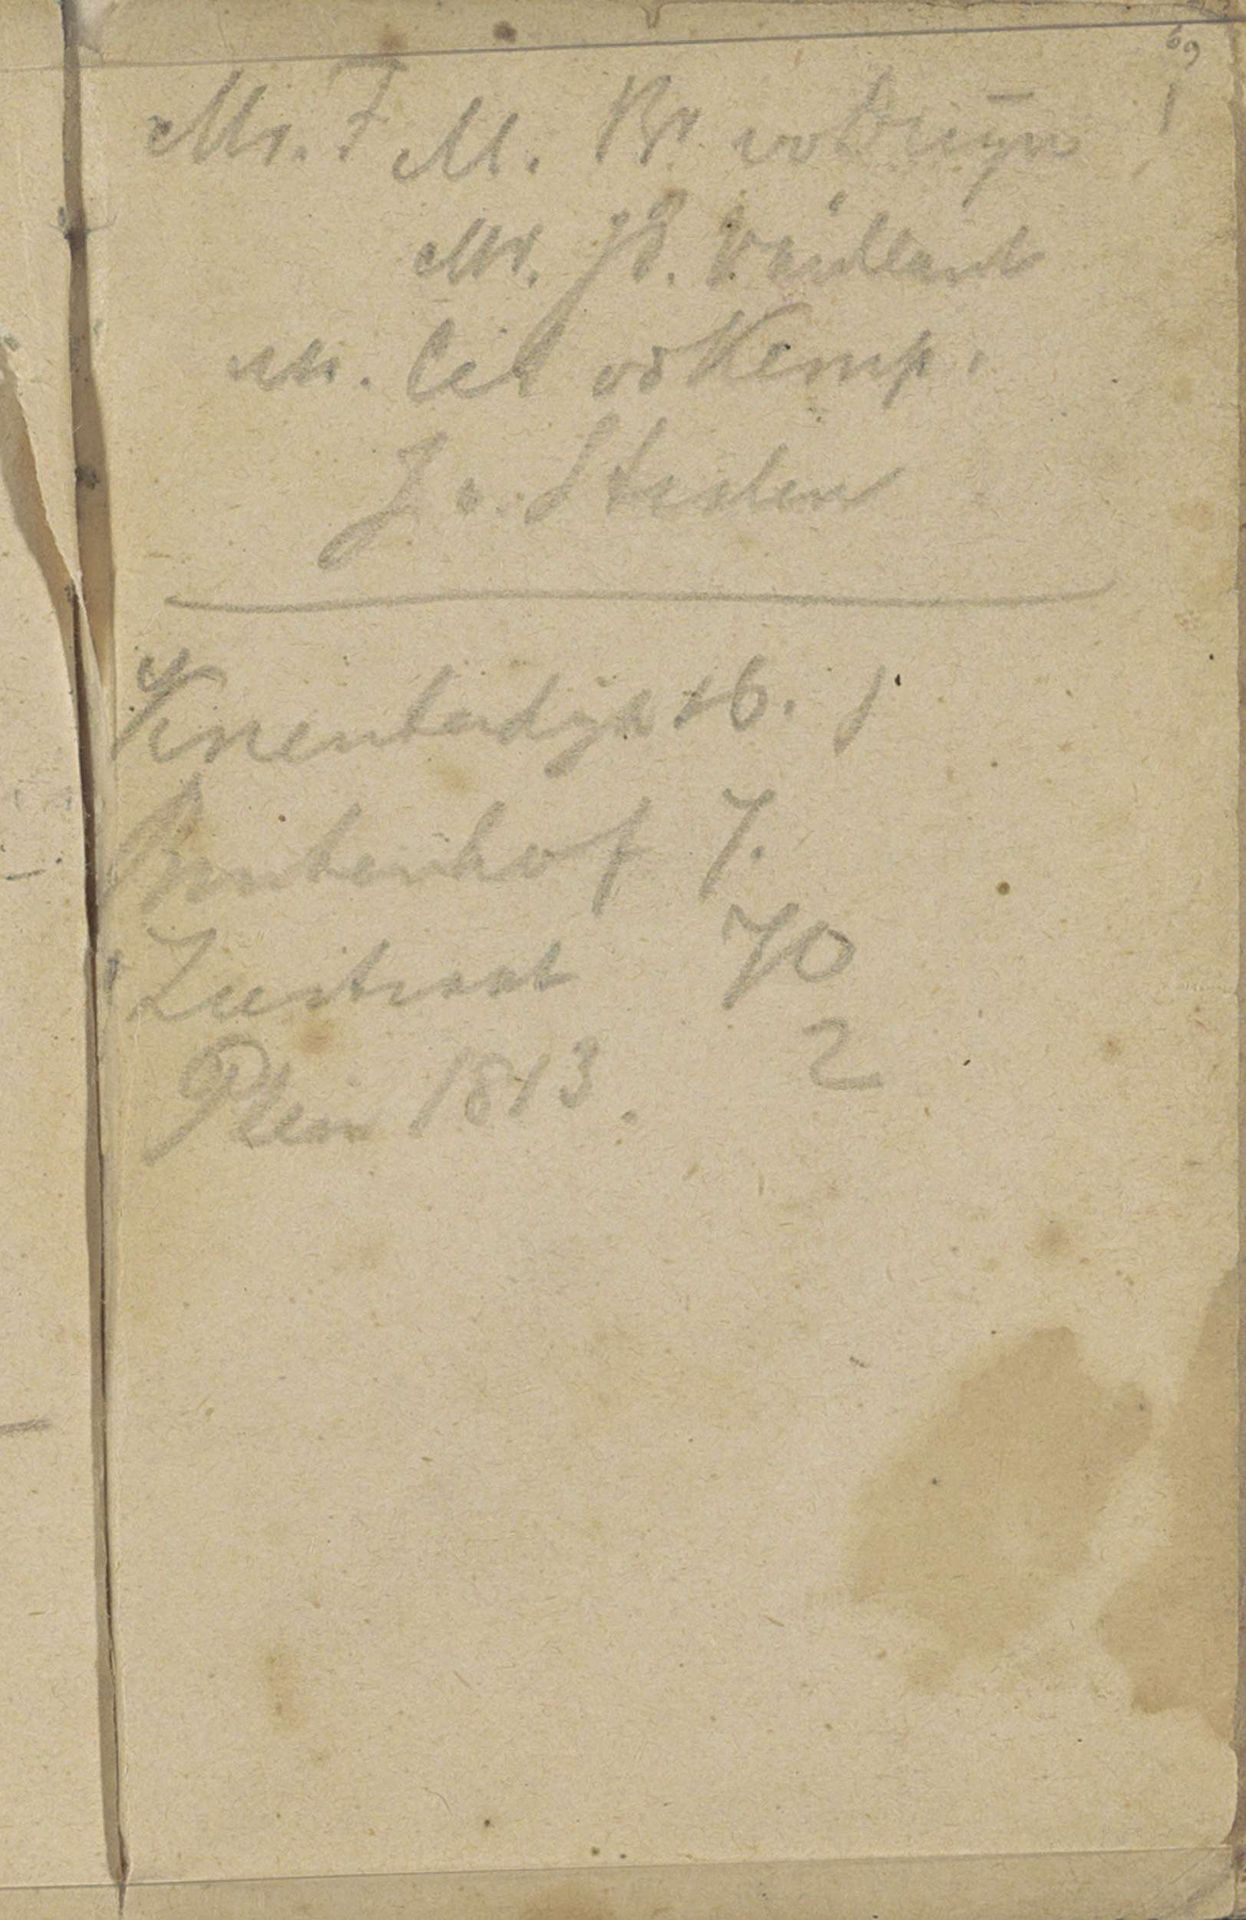 69
Mr. F M. Br vd Duyn
Mr. J E. Vaillant
Mr. C vd Kemp.
J v. Straten
Kneuterdijk 16. 1
Buitenhof 7.
Zeestraat 70
Plein 1813. 2